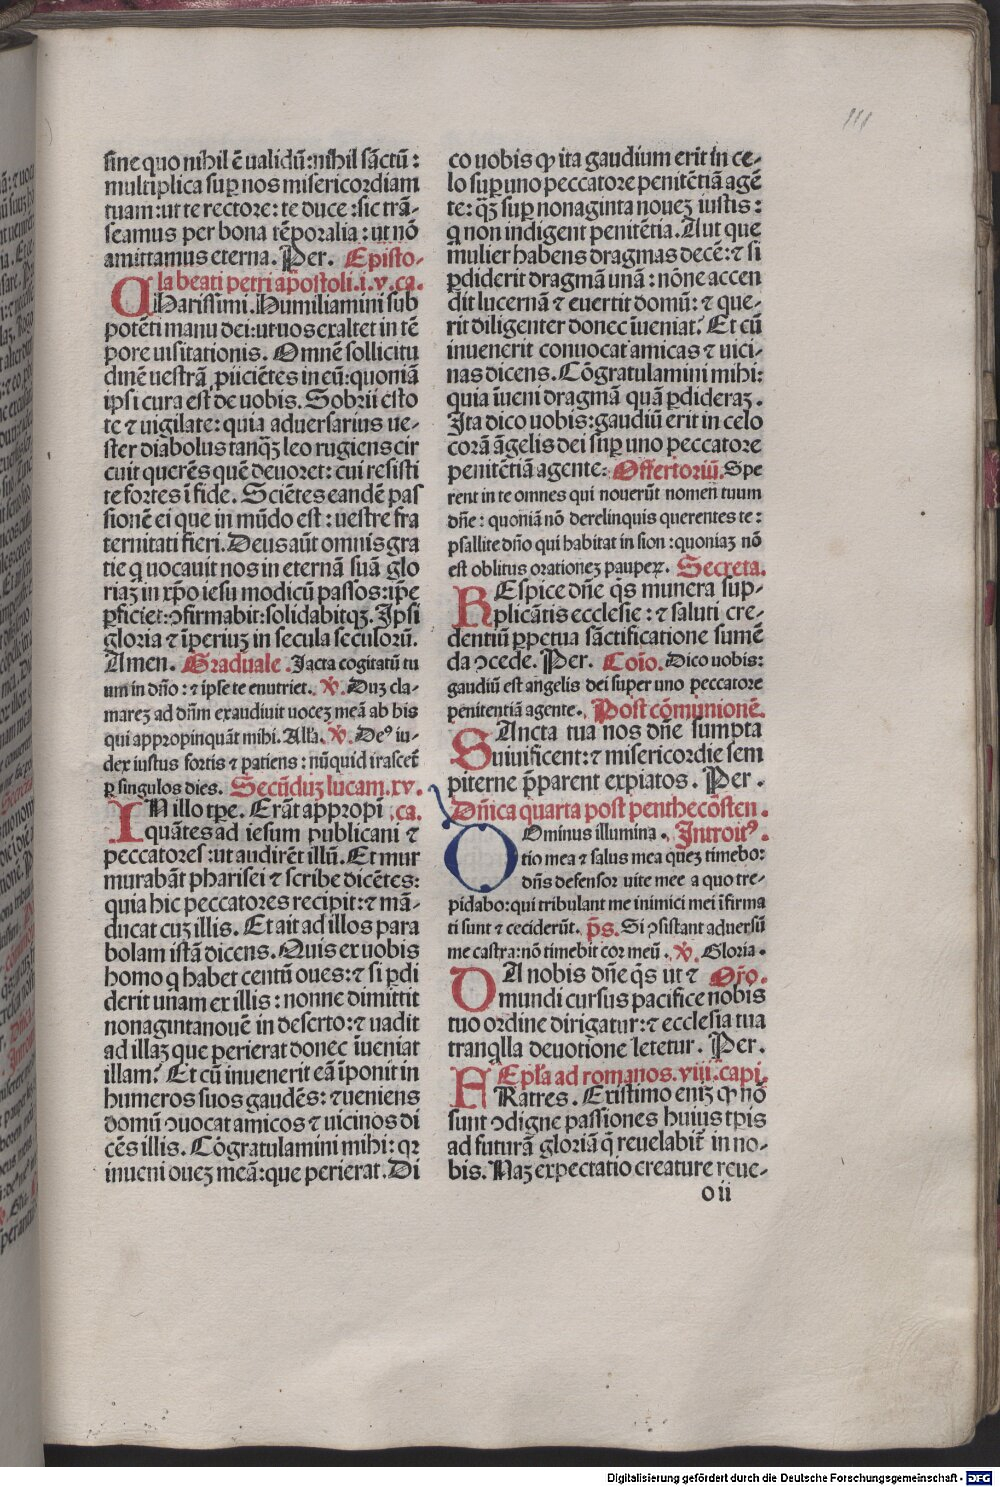 111
sine quo nihil ē ualidū: nihil sāctū:
multiplica suꝑ nos misericordiam
tuam: ut te rectore: te duce: sic trā-
seamus per bona tēporalia: ut nō
amittamus eterna. Per. Episto-
la beati petri apostoli. i. v. ca.
CHarissimi. Humiliamini sub
potēti manu dei: ut uos exaltet in tē
pore uisitationis. Omnē sollicitu
dinē uestrā ꝓiiciētes in eū: quoniā
ipsi cura est de uobis. Sobrii esto
te ⁊ uigilate: quia aduersarius ue-
ster diabolus tanqꝫ leo rugiens cir
cuit querēs quē deuoret: cui resisti
te fortes ī fide. Sciētes eandē pas
sionē ei que in mūdo est: uestre fra
ternitati fieri. Deus aūt omnis gra
tie q uocauit nos in eternā suā glo
riaꝫ in xp̄o iesu modicū passos: ip̄e
ꝑficiet: ꝯfirmabit: solidabitqꝫ. Ipsi
gloria ⁊ īperiuꝫ in secula seculorū.
Amen. Graduale. Iacta cogitatū tu
um in dn̄o: ⁊ ipse te enutriet. ℣. Duꝫ cla-
mareꝫ ad dn̄m exaudiuit uoceꝫ meā ab his
qui appropinquāt mihi. All'a. ℣. Deꝰ iu-
dex iustus fortis ⁊ patiens: nūquid irascet̄
ꝑ singulos dies. Secūduꝫ lucam. xv.
IN illo tp̄e. Erāt appropī .ca.
quātes ad iesum publicani ⁊
peccatores: ut audirēt illū. Et mur
murabāt pharisei ⁊ scribe dicētes:
quia hic peccatores recipit: ⁊ mā-
ducat cuꝫ illis. Et ait ad illos para
bolam istā dicens. Quis ex uobis
homo q habet centū oues: ⁊ si ꝑdi
derit unam ex illis: nonne dimittit
nonagintanouē in deserto: ⁊ uadit
ad illaꝫ que perierat donec īueniat
illam? Et cū inuenerit eā īponit in
humeros suos gaudēs: ⁊ ueniens
domū ꝯuocat amicos ⁊ uicinos di
cēs illis. Cōgratulamini mihi: qꝛ
inueni oueꝫ meā: que perierat. Di
co uobis ꝙ ita gaudium erit in ce-
lo suꝑ uno peccatore penitētiā agē
te: qꝫ suꝑ nonaginta noueꝫ iustis:
q non indigent penitētia. Aut que
mulier habens dragmas decē: ⁊ si
ꝑdiderit dragmā unā: nōne accen
dit lucernā ⁊ euertit domū: ⁊ que-
rit diligenter donec īueniat? Et cū
inuenerit conuocat amicas ⁊ uici-
nas dicens. Cōgratulamini mihi:
quia īueni dragmā quā ꝑdideraꝫ.
Ita dico uobis: gaudiū erit in celo
corā āgelis dei suꝑ uno peccatore
penitētiā agente: Offertoriū. Spe
rent in te omnes qui nouerūt nomen tuum
dn̄e: quoniā nō derelinquis querentes te:
psallite dn̄o qui habitat in sion: quoniaꝫ nō
est oblitus orationeꝫ pauperꝝ. Secreta.
REspice dn̄e qs̄ munera sup-
plicātis ecclesie: ⁊ saluti cre-
dentiū ꝑpetua sāctificatione sumē
da ꝯcede. Per. Cōio. Dico uobis:
gaudiū est angelis dei super uno peccatore
penitentiā agente. Post cōmunionē.
SAncta tua nos dn̄e sumpta
uiuificent: ⁊ misericordie sem
piterne p̄parent expiatos. Per.
Dn̄ica quarta post penthecosten.
DOminus illumina. Introitꝰ.
tio mea ⁊ salus mea queꝫ timebo:
dn̄s defensor uite mee a quo tre-
pidabo: qui tribulant me inimici mei īfirma
ti sunt ⁊ ceciderūt. p̄s. Si ꝯsistant aduersū
me castra: nō timebit cor meū. ℣. Gloria.
DA nobis dn̄e qs̄ ut ⁊ Or̄o.
mundi cursus pacifice nobis
tuo ordine dirigatur: ⁊ ecclesia tua
tranqlla deuotione letetur. Per.
Epl'a ad romanos. viii. capi.
FRatres. Existimo eniꝫ ꝙ nō
sunt ꝯdigne passiones huius tp̄is
ad futurā gloriā q̄ reuelabit̄ in no-
bis. Naꝫ expectatio creature reue-
o ii
Digitalisierung gefördert durch die Deutsche Forschungsgemeinschaft - DFG